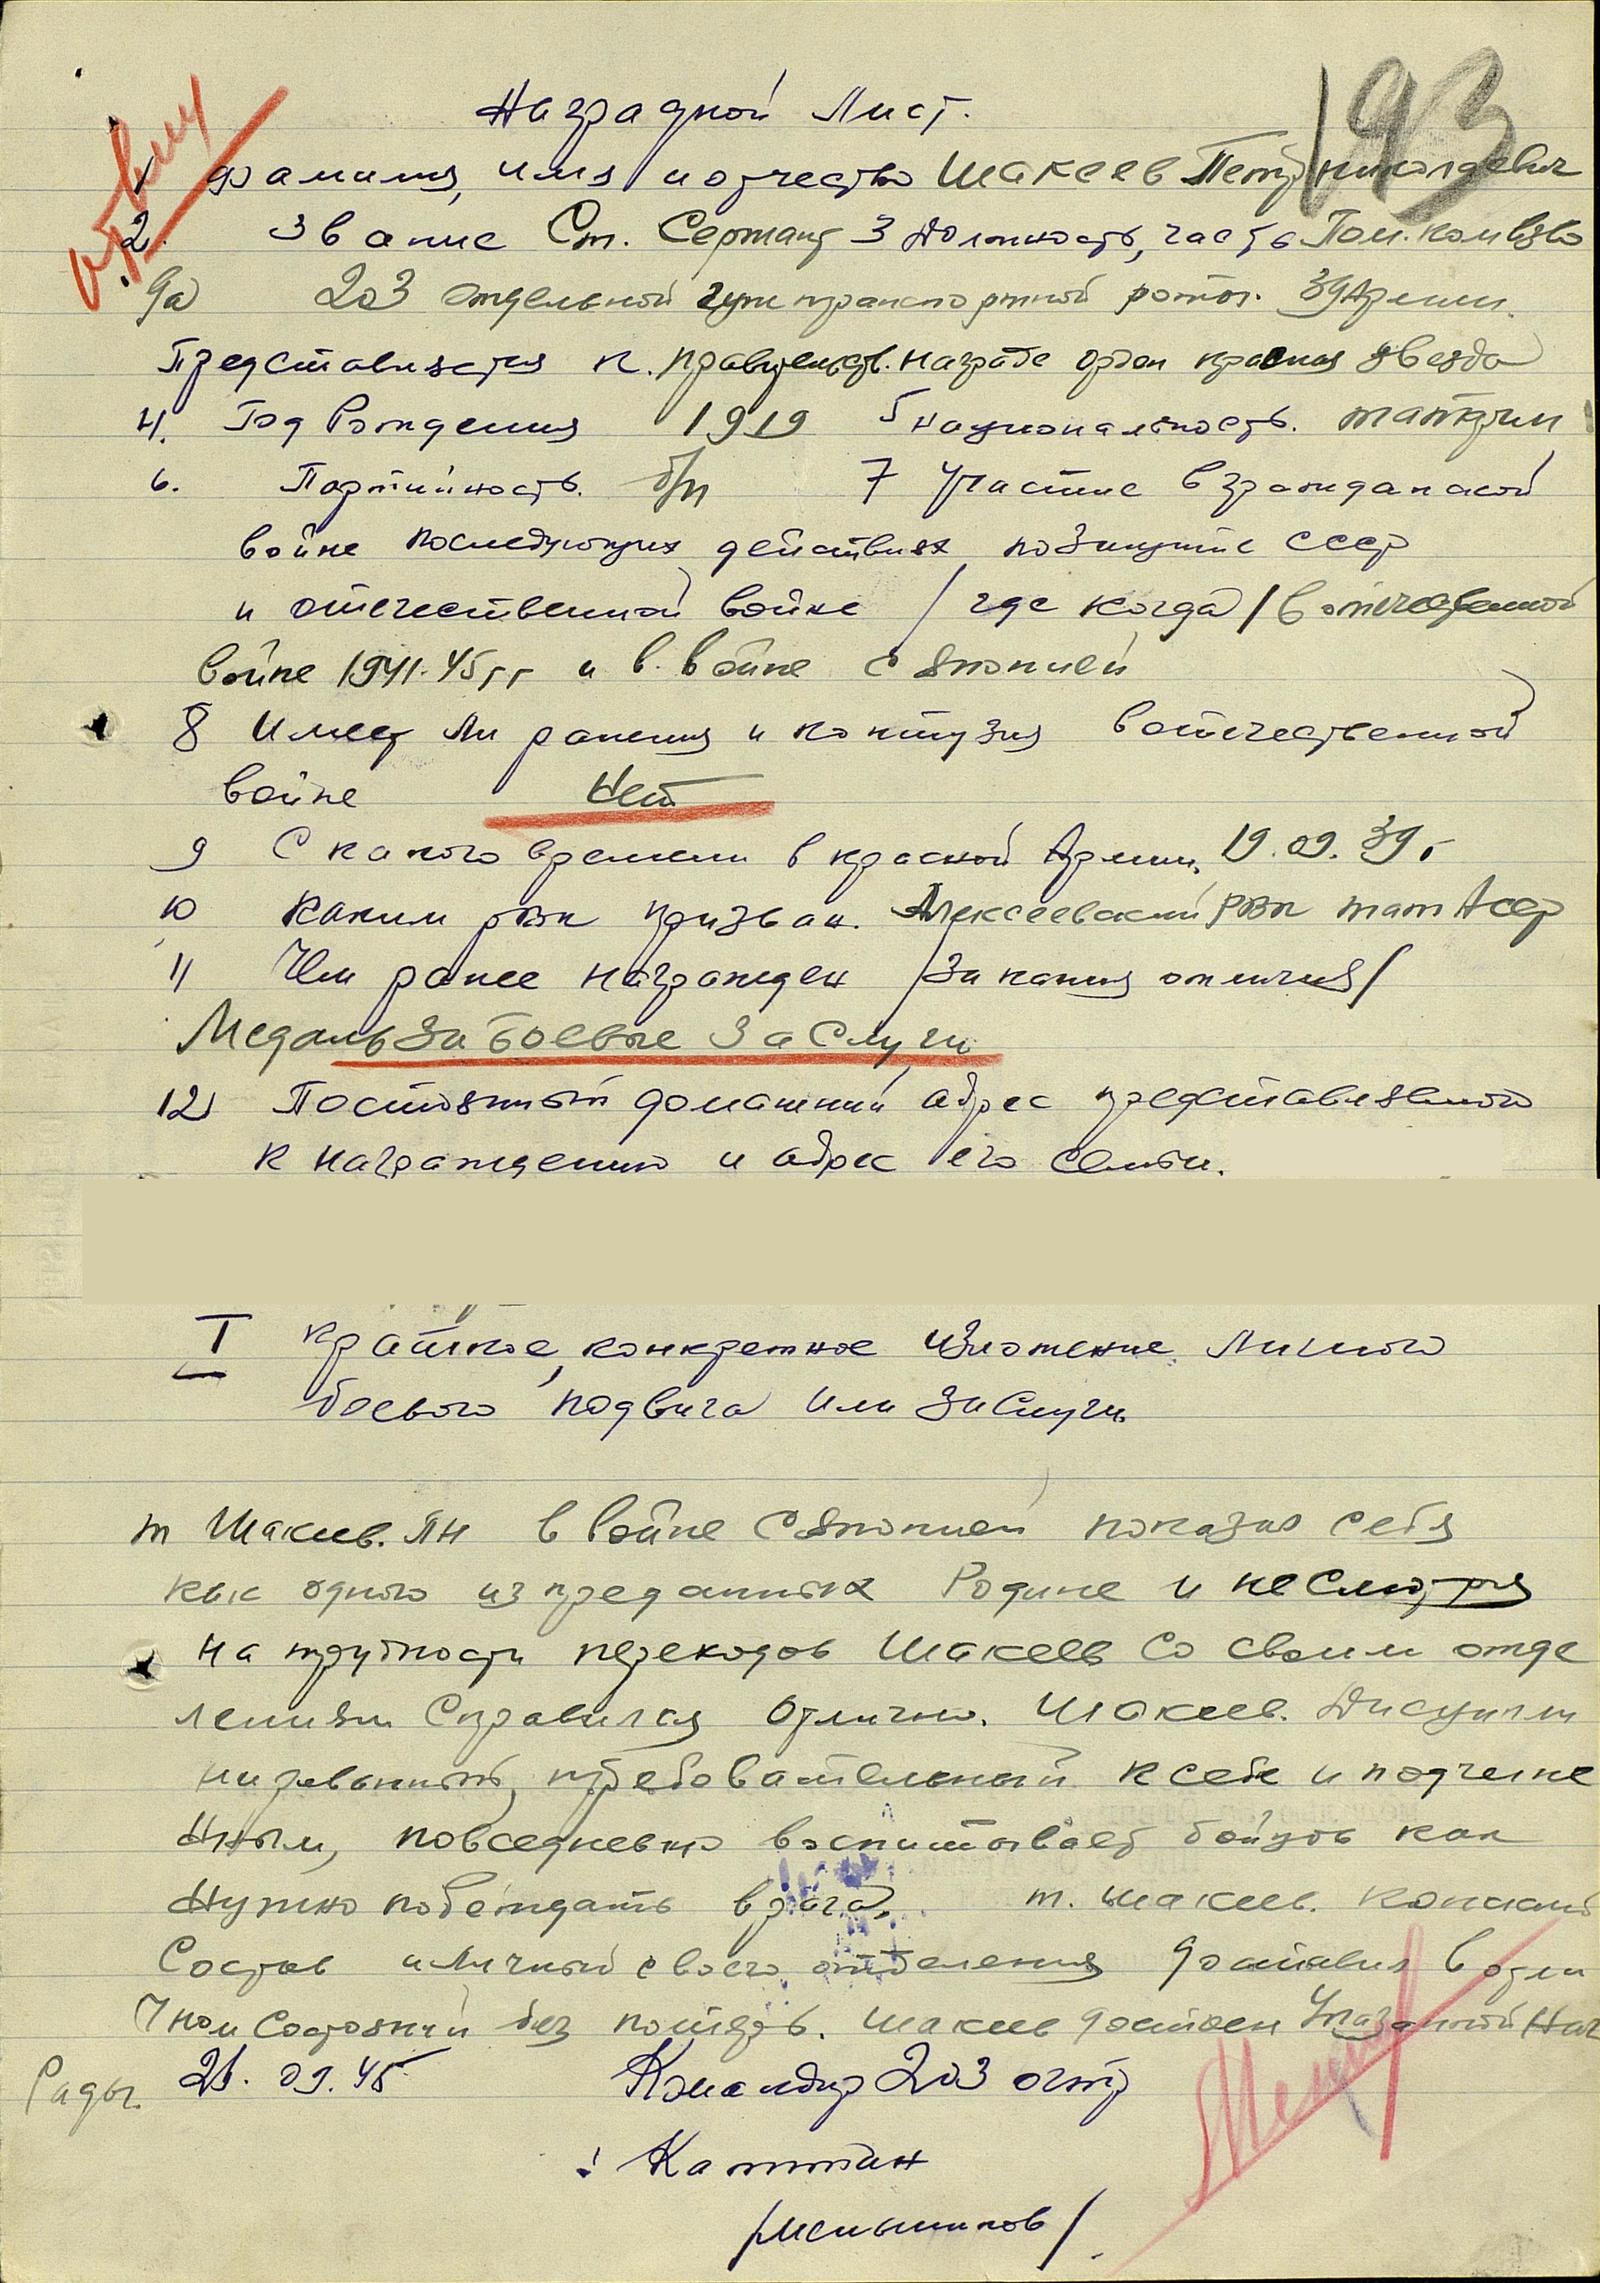 193
Наградной Лист.
1 фамилия, имя и отчество Шакеев Петр Николаевич
2. Звание Ст. Сержант 3 Должность, часть Пом. комвзво
да 203 отдельной гужтранспортной роты. 39 Армии.
Представляется к. правительств. награде орден красная звезда
4. Год Рождения 1919 5 национальность. татарин
6. Партийность. б/п 7 Участие в гражданской
войне последующих действиях по защите СССР
и отечественной войне / где когда / в отечественной
войне 1941-45 гг и в. войне с Японией
8 Имеет ли ранения и контузия в отечественной
войне Нет
9 С какого времени в красной Армии, 19.09.39 г
10 Каким рвк призван. Алексеевский РВК тат АССР
11 Чем ранее награжден / за какия отличия /
Медаль За Боевые Заслуги
12) Постоянный домашний адрес представляемого
к награждению и адрес его семьи.
I краткое, конкретное изложение личного
боевого подвига или заслуги
т Шакеев. ПН в войне с Японией показал себя
как одного из преданных Родине и не смотря
на трудности переходов Шакеев со своим отде
лениям справился отлично. Шакеев. Дисципли
нированный, требовательный к себе и подчине
нным, повседневно воспитывает бойцов как
нужно побеждать врага. т. Шакеев. конский
состав и личный своего отделения доставил в отли
чном состоянии без потерь. Шакеев достоен указанной наг
Рады. 21.09.45 Командир 203 огтр
Капитан
/Меньшиков/